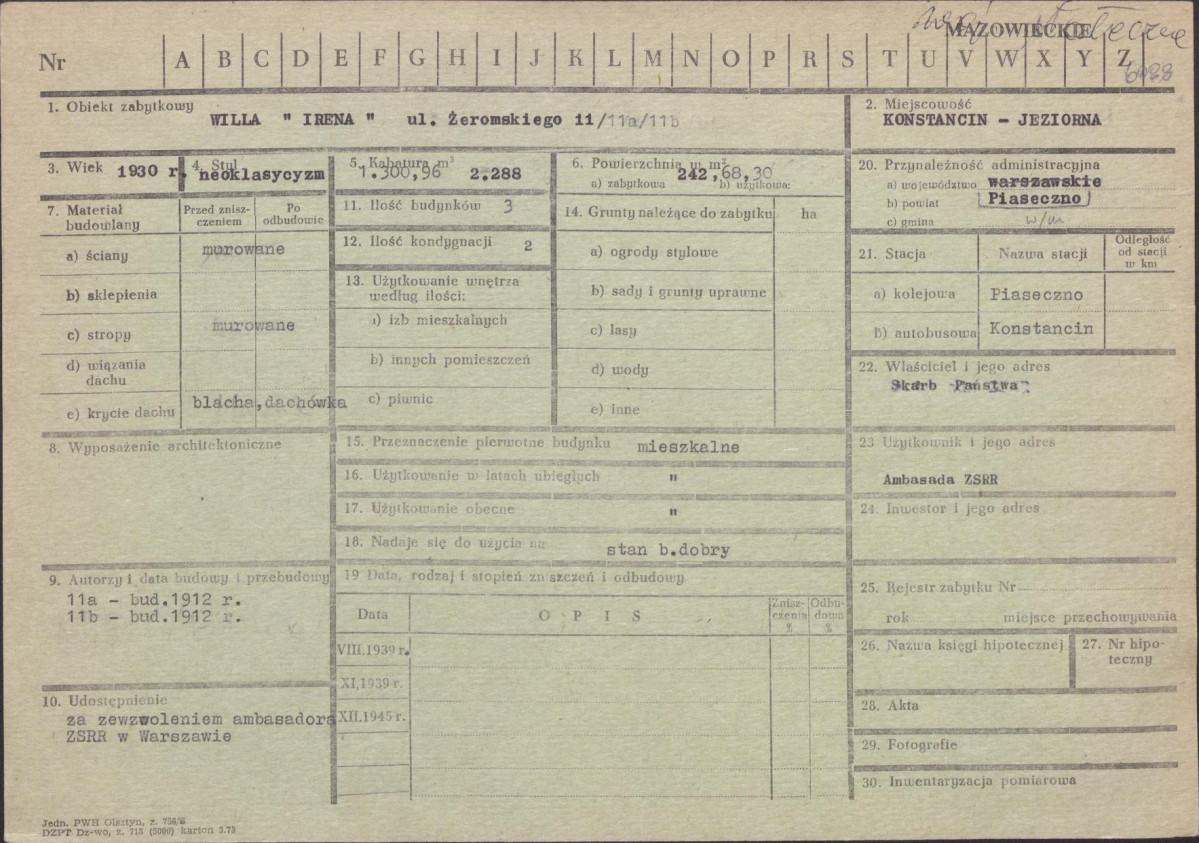 MAZOWIECKIE
Nr A B C D E F G H I J K L M N O P R S T U V W X Y Z
1. Obiekt zabytkowy
WILLA " IRENA " ul. Żeromskiego 11/11a/11b
2. Miejscowość
KONSTANCIN - JEZIORNA
3. Wiek 1930 r.
4. Styl
neoklasycyzm
5. Kubatura m³
1.300,96 2.288
6. Powierzchnia w m²
242,68,30
a) zabytkowa b) użytkowa:
20. Przynależność administracyjna
a) województwo warszawskie
b) powiat Piaseczno
c) gmina w/m
7. Materiał budowlany
Przed zniszczeniem
Po odbudowie
a) ściany murowane
b) sklepienia
c) stropy murowane
d) wiązania dachu
e) krycie dachu blacha, dachówka
11. Ilość budynków 3
12. Ilość kondygnacji 2
13. Użytkowanie wnętrza
według ilości:
a) izb mieszkalnych
b) innych pomieszczeń
c) piwnic
14. Grunty należące do zabytku ha
a) ogrody stylowe
b) sady i grunty uprawne
c) lasy
d) wody
e) inne
21. Stacja Nazwa stacji Odległość od stacji w km
a) kolejowa Piaseczno
b) autobusowa Konstancin
22. Właściciel i jego adres
Skarb Państwa
8. Wyposażenie architektoniczne
15. Przeznaczenie pierwotne budynku mieszkalne
16. Użytkowanie w latach ubiegłych "
17. Użytkowanie obecne "
18. Nadaje się do użycia na stan b.dobry
23 Użytkownik i jego adres
Ambasada ZSRR
24. Inwestor i jego adres
9. Autorzy i data budowy i przebudowy
11a - bud.1912 r.
11b - bud.1912 r.
19 Data, rodzaj i stopień zniszczeń i odbudowy
Data O P I S Zniszczenia % Odbudowa %
VIII.1939 r.
XI,1939 r.
XII.1945 r.
25. Rejestr zabytku Nr
rok miejsce przechowywania
26. Nazwa księgi hipotecznej
27. Nr hipoteczny
28. Akta
29. Fotografie
30. Inwentaryzacja pomiarowa
10. Udostępnienie
za zewzwoleniem ambasadora
ZSRR w Warszawie
Jedn. PWH Olsztyn, z. 756/E
DZPT Dz-wo, z. 713 (5000) karton 3.73